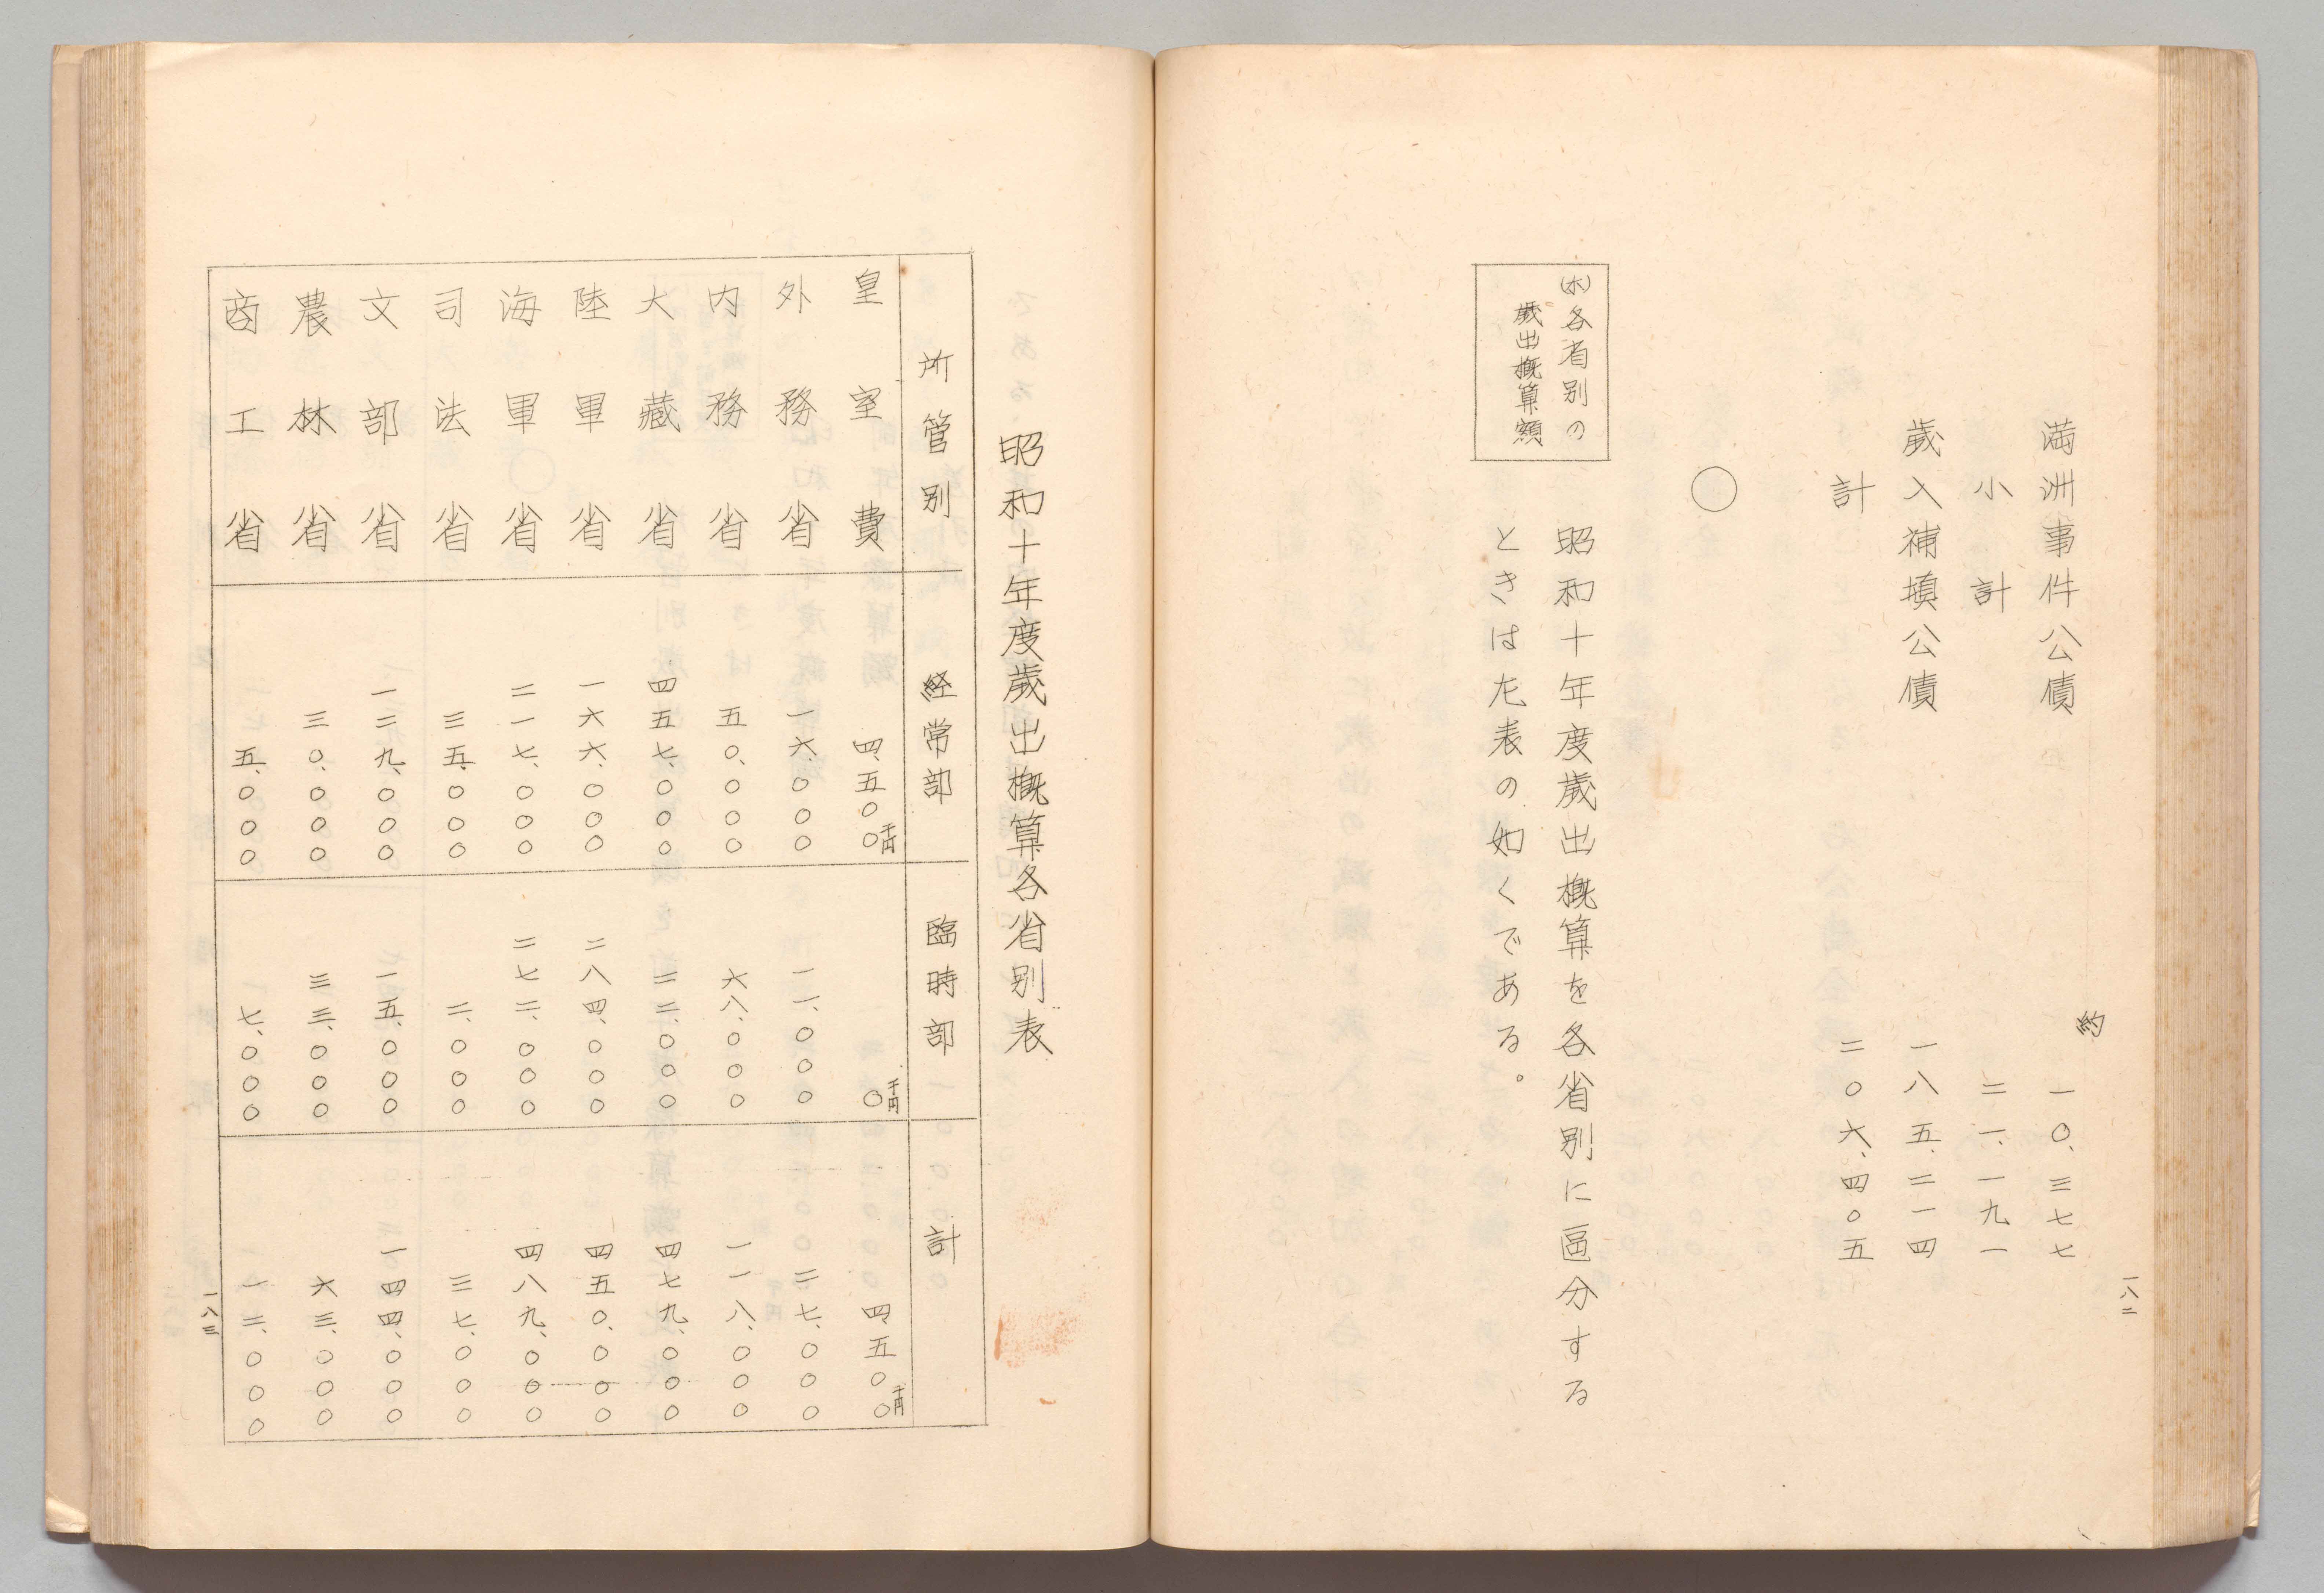 一八二
約
満洲事件公債 一〇、三七七
小計 二一、一九一
歲入補塡公債 一八五、二一四
計 二〇六、四〇五
○
(ホ)各省別の
歲出概算額
昭和十年度歲出概算を各省別に區分する
ときは左表の如くである。
昭和十年度歲出概算各省別表
所管別 経常部 臨時部 計
皇室費 四、五〇〇千円 〇千円 四、五〇〇千円
外務省 一六、〇〇〇 一一、〇〇〇 二七、〇〇〇
内務省 五〇、〇〇〇 六八、〇〇〇 一一八、〇〇〇
大藏省 四五七、〇〇〇 二二、〇〇〇 四七九、〇〇〇
陸軍省 一六六、〇〇〇 二八四、〇〇〇 四五〇、〇〇〇
海軍省 二一七、〇〇〇 二七二、〇〇〇 四八九、〇〇〇
司法省 三五、〇〇〇 二、〇〇〇 三七、〇〇〇
文部省 一二九、〇〇〇 一五、〇〇〇 一四四、〇〇〇
農林省 三〇、〇〇〇 三三、〇〇〇 六三、〇〇〇
商工省 五、〇〇〇 七、〇〇〇 一二、〇〇〇
一八三